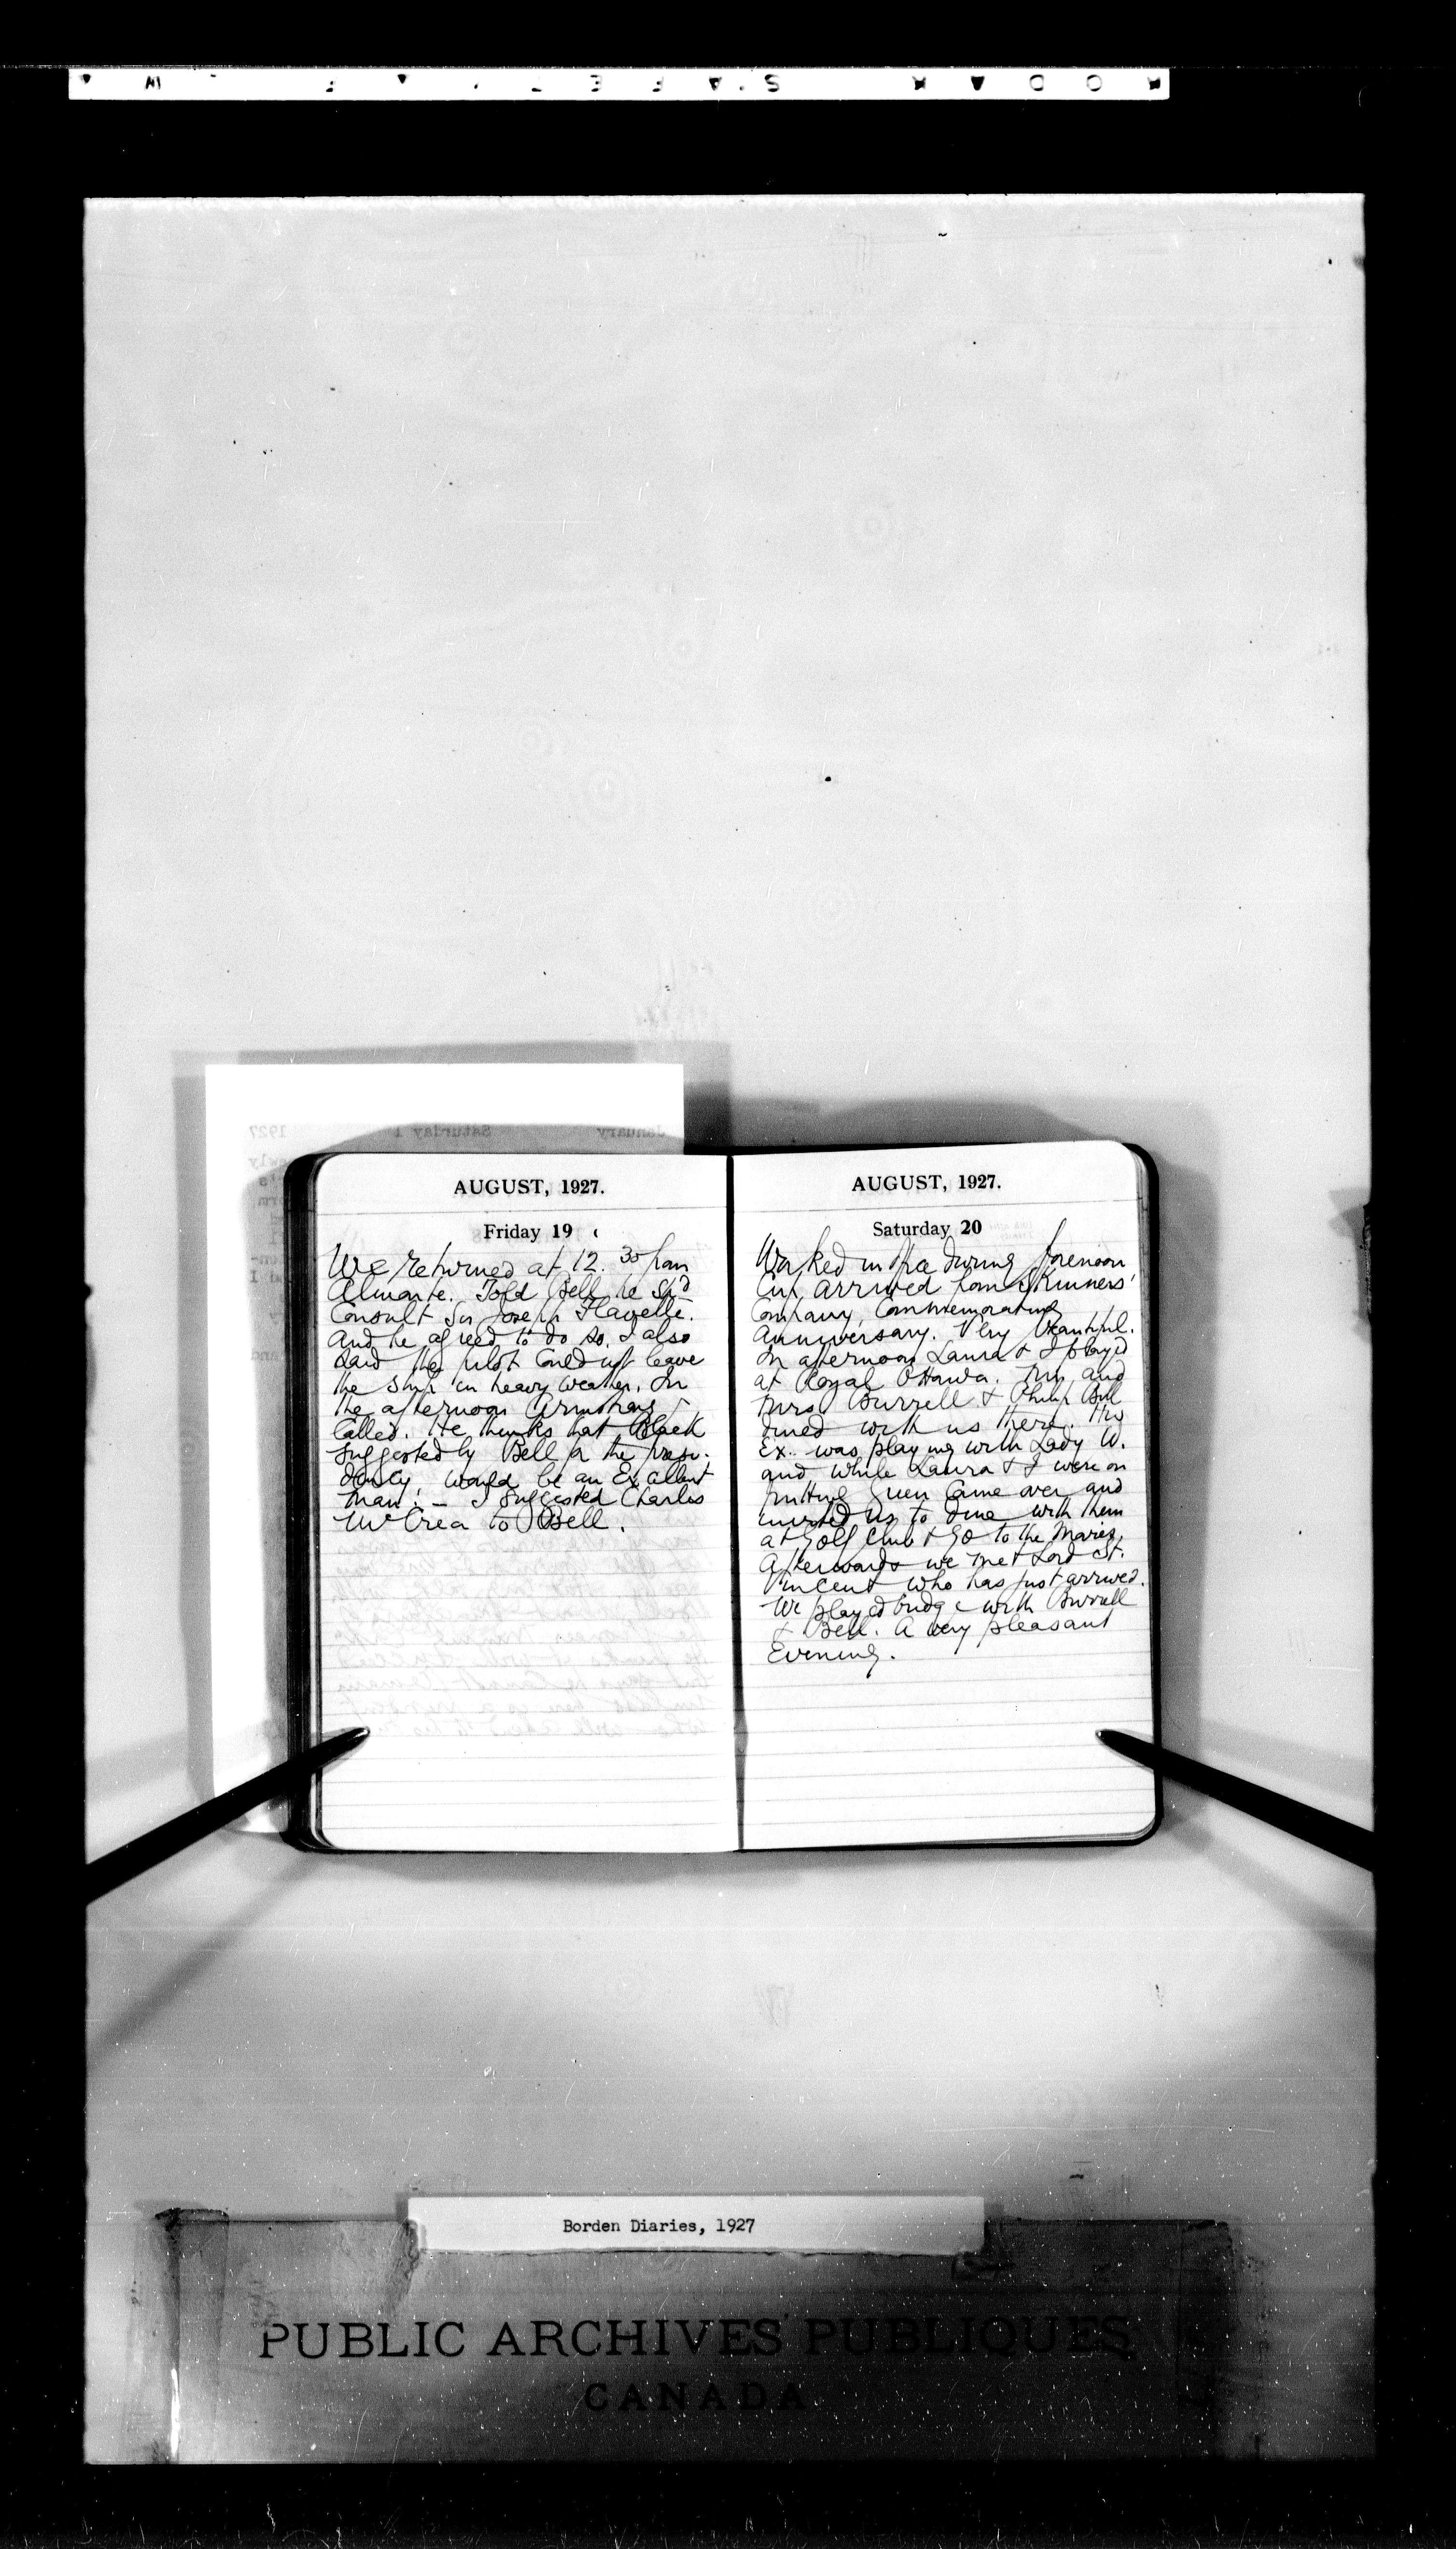 AUGUST, 1927.
Friday 19
We returned at 12.30 from
Almonte. Told Bell he sh'd
Consult Sir Joseph Flavelle.
And he agreed to do so. I also
said the pilot could not leave
the ship in heavy weather. In
the afternoon Armstrong
Called. He thinks that Black
suggested by Bell for the presi-
dency, would be an Excellent
man. — I suggested Charles
McCrea to Bell.
AUGUST, 1927.
Saturday 20
Worked in office during forenoon
Cup arrived from Skinners'
Company, Commemorating
Anniversary. Very beautiful.
In afternoon Laura & I played
at Royal Ottawa. Mr. and
Mrs Burrell & Philip Bell
dined with us there. His
Ex. was playing with Lady W.
and while Laura & I were on
putting green came over and
invited us to dine with them
at Golf Club & go to the Movies.
Afterwards we met Lord St.
Vincent who has just arrived.
We played bridge with Burrell
& Bell. A very pleasant
Evening.
Borden Diaries, 1927
PUBLIC ARCHIVES PUBLIQUES
CANADA